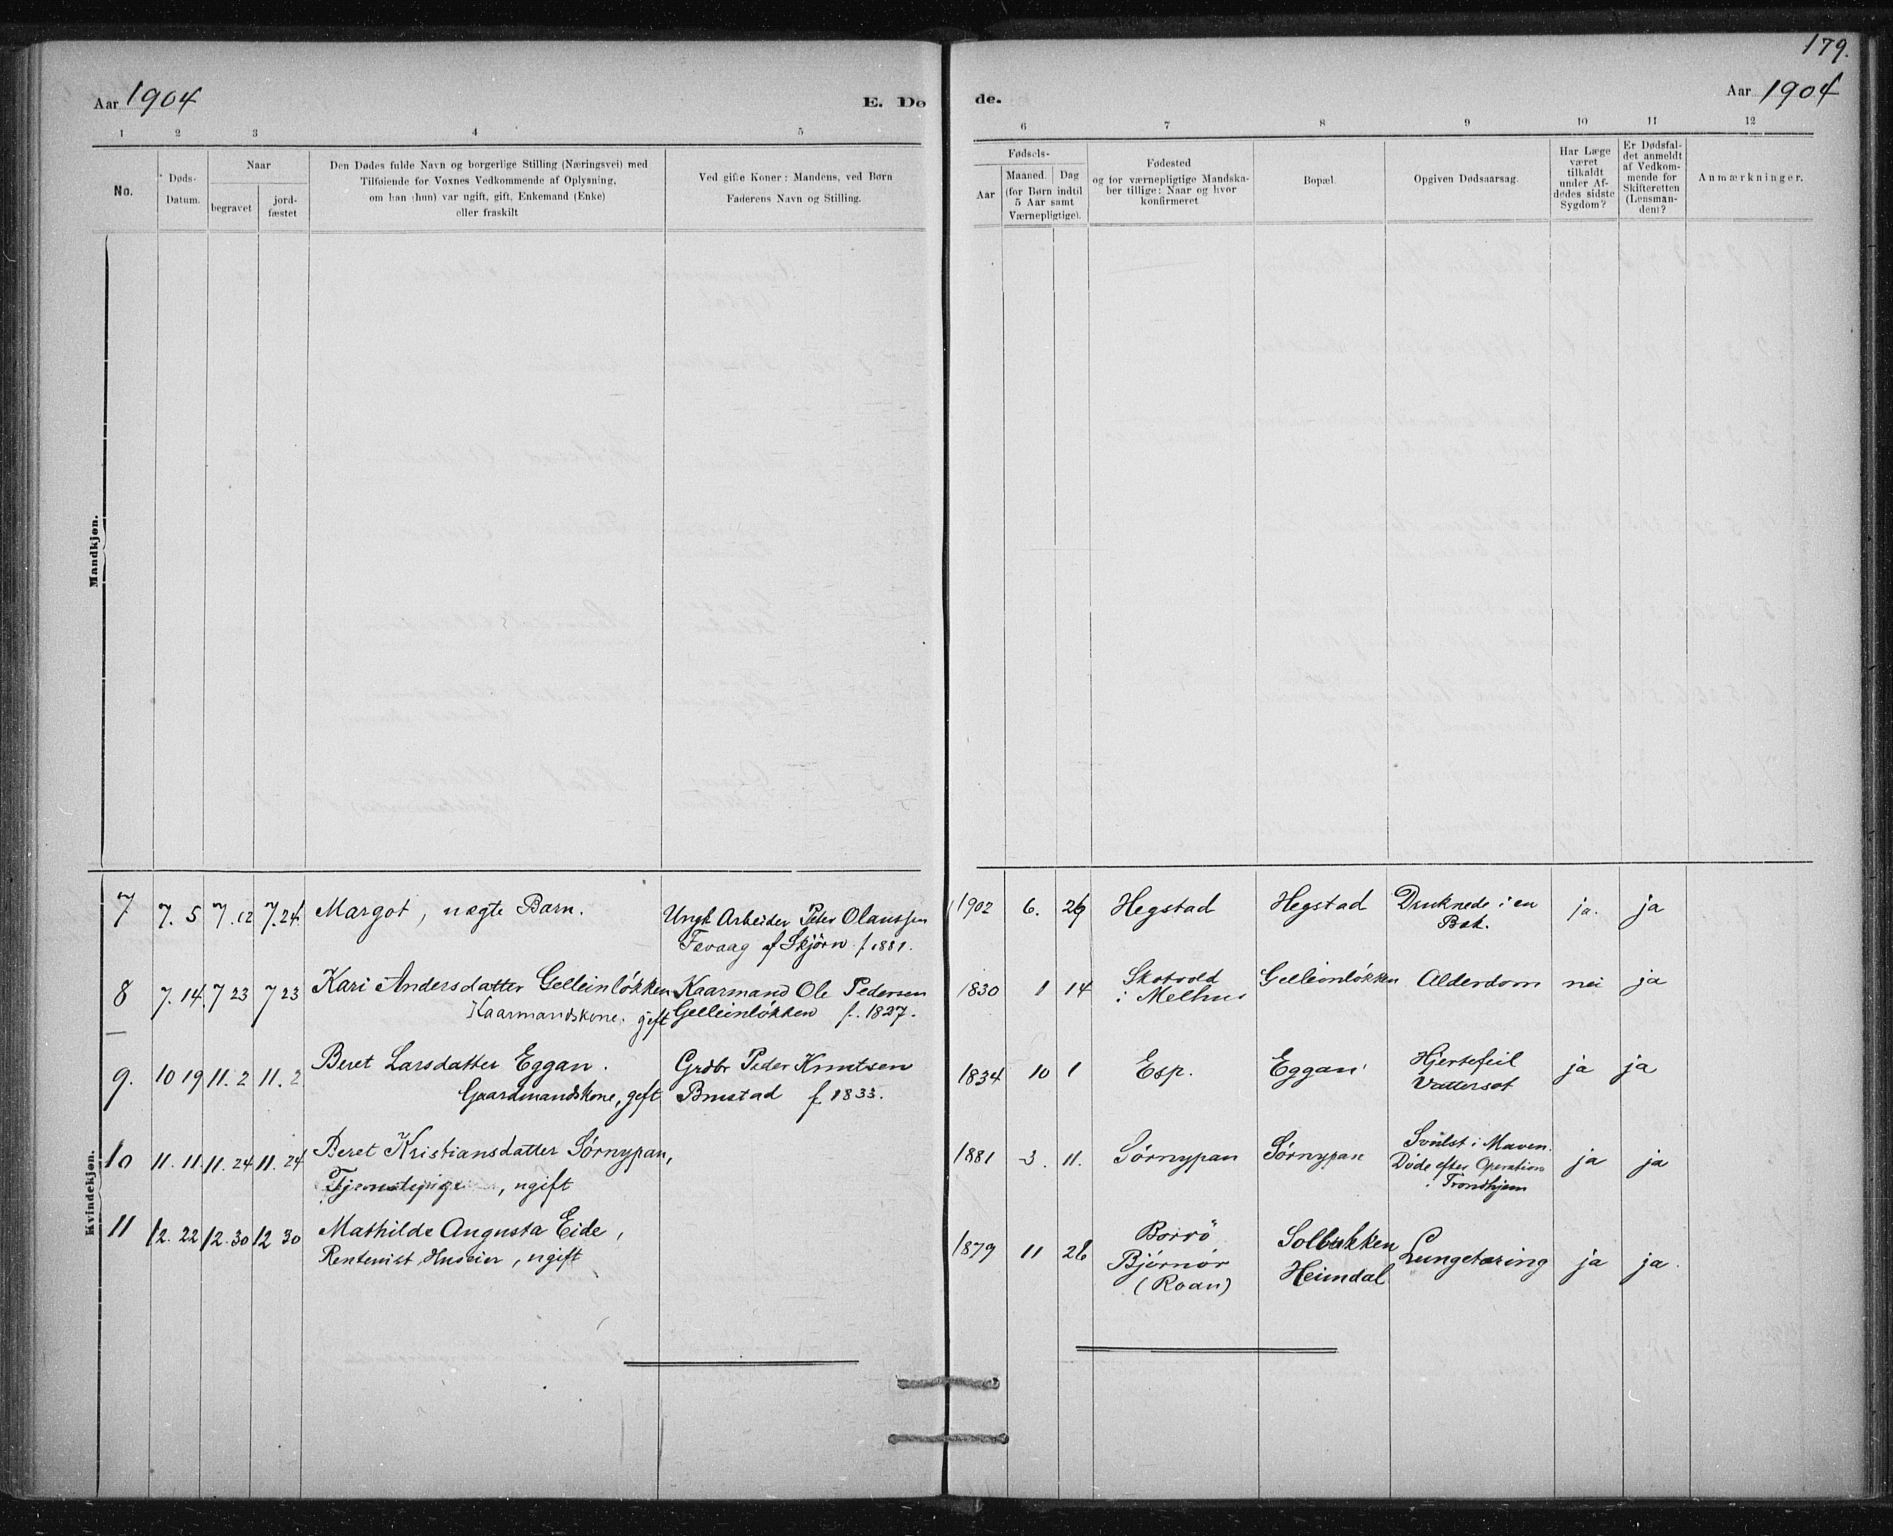 179.
Aar 1904
E. Dø
de.
Aar 1904
1 2 3 4 5
6 7 8 9 10 11 12
No.
Døds-
Datum.
Naar
begravet
jord-
fæstet
Den Dødes fulde Navn og borgerlige Stilling (Næringsvei) med
Tilføiende for Voxnes Vedkommende af Oplysning,
om han (hun) var ugift, gift, Enkemand (Enke)
eller fraskilt
Ved gifte Koner: Mandens, ved Børn
Faderens Navn og Stilling.
Fødsels-
Aar
Maaned. Dag
(for Børn indtil
5 Aar samt
Værnepligtige).
Fødested
og for værnepligtige Mandska-
ber tillige: Naar og hvor
konfirmeret
Bopæl.
Opgiven Dødsaarsag.
Har Læge
været
tilkaldt
under Af-
dødes sidste
Sygdom?
Er Dødsfal-
det anmeldt
af Vedkom-
mende for
Skifteretten
(Lensman-
den)?
Anmærkninger.
Mandkjøn.
Kvindekjøn.
7 7. 5 7. 12 7. 24 Margot, uægte Barn. Ungk Arbeider Peter Olaussen
Fevaag af Skjørn f. 1881.
1902 6. 29 Hegstad Hegstad Druknede i en
Bæk. ja. ja
8 7. 14. 7 23 7 23 Kari Andersdatter Gelleinløkken
Kaarmandskone. gift
Kaarmand Ole Pedersen
Gelleinløkken f. 1827.
1830 1 14 Skotvold
i Melhus Gelleinløkken Alderdom nei ja
9. 10 19 11. 2 11. 2 Beret Larsdatter Eggan.
Gaardmandskone, gift
Grdbr Peder Knutsen
Brustad f 1833.
1834 10 1 Esp. Eggan Hjertefeil
Vattersot ja ja
10 11. 11. 11. 24 11. 24 Beret Kristiansdatter Sørnypan,
Tjenestepige, ugift
1881 3. 11. Sørnypan Sørnypan Svulst i Maven.
Døde efter Operation
i Trondhjem ja ja
11 12. 22 12. 30 12 30 Mathilde Augusta Eide,
Rentenist Huseier, ugift
1879 11 26 Borrö
Bjørnør
(Roan)
Solbakken
Heimdal Lungetæring ja ja.